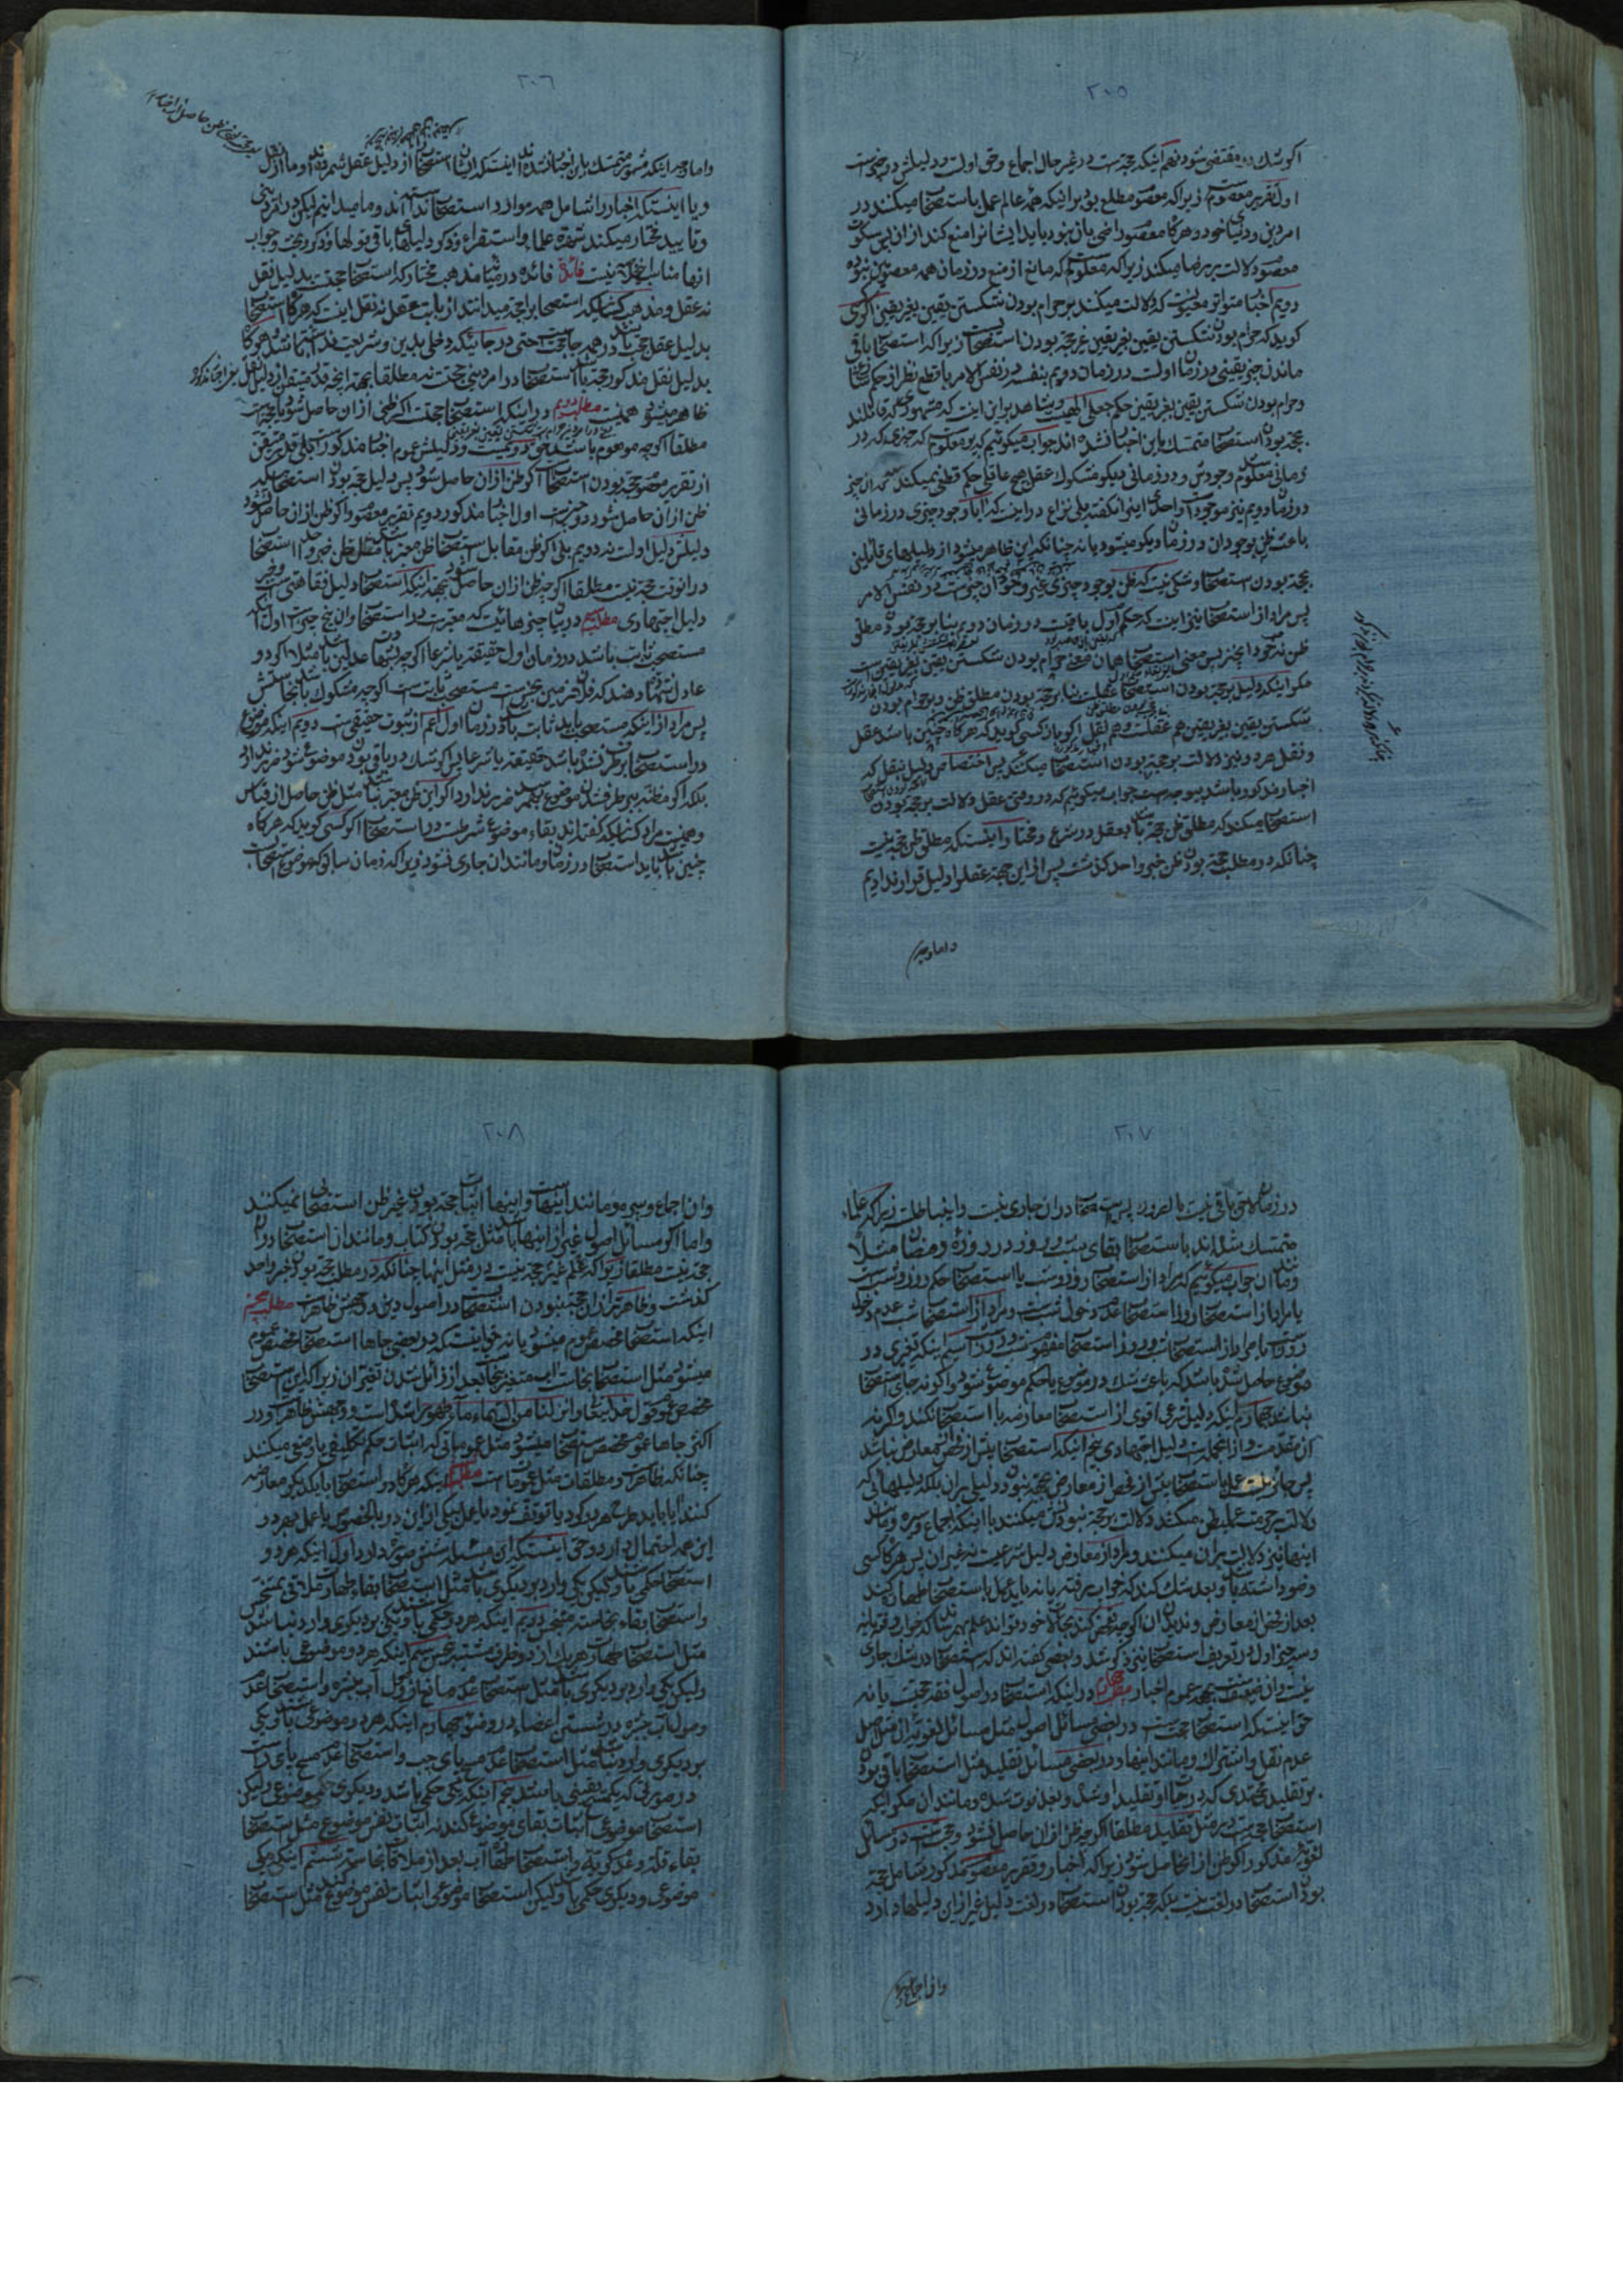 ۲۰۵
اول تقریر معصوم زیرا که معصوم مطلع بود بر اینکه همه عالم عمل باستصحاب میکنند در
امر دین و دنیای خود و هر گاه معصوم راضی بآن نبود باید ایشانرا منع کند از آن پس سکوت
معصوم دلالت بر رضا میکند زیرا که معلومست که مانع از منع در زمان همه معصومین نبوده
دویم اخبار متواتره معنویست که دلالت میکند بر حرام بودن شکستن یقین بغیر یقین اگر کسی
کوید که حرام بودن شکستن یقین بغیر یقین غیر حجة بودن استصحابست زیرا که استصحاب باقی
ماندن چیز یقینی در زمان اولست در زمان دویم بنفسه در نفس الامر با قطع نظر از حکم شارع
و حرام بودن شکستن یقین بغیر یقین حکم جعلی الهیست و شاهد بر این اینست که مشهوری که قائلند
بحجة بودن استصحاب متمسک باین اخبار نشده اند جواب میکوئیم که پر معلومست که چیزی که در
زمانی معلوم وجودش و در زمانی دیکر مشکوک عقل هیچ عاقلی حکم قطعی نمیکند که آن چیز
در زمان دویم نیز موجود است و احدی این را نکفته بلی نزاع در اینست که آیا وجود چیزی در زمانی
باعث ظن بوجود آن در زمان دیکر میشود یا نه چنانکه این ظاهر میشود از دلیلهای قائلین
بحجة بودن استصحاب و شکی نیست که ظن بوجود چیزی غیر وجود آن چیز است در نفس الامر
پس مراد از استصحاب نیز اینست که حکم اول باقیست در زمان دویم بنا بر حجة بودن مطلق
ظن نه خود آن چیز پس معنی استصحاب همان معنی حرام بودن شکستن یقین بغیر یقین است
مکر اینکه دلیل بر حجة بودن استصحاب عقلست بنا بر حجة بودن مطلق ظن و بر حرام بودن
شکستن یقین بغیر یقین هم عقلست و هم نقل اکر باز کسی کوید که هر گاه چنین باشد عقل
و نقل هر دو نیز دلالت بر حجة بودن استصحاب میکنند پس اختصاص دلیل بنقل که
اخبار مذکوره باشد بیوجه است جواب میکوئیم که در وقتی عقل دلالت بر حجة بودن
استصحاب میکند که مطلق ظن حجة باشد بعقل در شرع و مختار اینستکه مطلق ظن حجة نیست
چنانکه در مطلب حجة بودن ظن خبر واحد گذشت پس از این جهة عقل را دلیل قرار ندادیم
و اما وجه
۲۰۶
و یا اینستکه اخبار را شامل همه موارد استصحاب ندانسته اند و ما میدانیم لیکن در اثر دینی
و تایید مختار میکند شهرة علما و استقراء و ذکر دلیلهای باقی قولها و ذکر بحث و جواب
آنها مناسب اینجا نیست فائدة فائده در میان مذهب مختار که استصحاب حجتست بدلیل نقل
نه عقل و مذهب کسانیکه استصحاب را حجة میدانند از باب عقل نه نقل اینست که هر گاه استصحاب
بدلیل عقل حجة باشد در همه جا حجتست حتی در جائیکه دخلی بدین و شریعت نداشته باشد و هر گاه
بدلیل نقل مذکور حجة باشد استصحاب در امر دینی حجتست نه مطلقا بجهة اینکه قدر متیقن از دلیل نقل
ظاهر میشود همینست مطلب دویم در اینکه استصحاب حجتست اکر ظنی از آن حاصل شود یا حجة است
مطلقا اکر چه موهوم باشد حق دویمست و دلیلش عموم اخبار مذکور است بلی قدر متیقن
از تقریر معصوم حجة بودن استصحابست اکر ظن از آن حاصل شود پس دلیل حجة بودن استصحابیکه
ظن از آن حاصل شود دو چیز است اول اخبار مذکوره دویم تقریر معصوم و اکر ظن از آن حاصل نشود
دلیلش دلیل اولست نه دویم بلی اکر ظن مقابل استصحاب ظن معتبر باشد مثل ظن خبر واحد استصحاب
در آنوقت حجة نیست مطلقا اکر چه ظن از آن حاصل شود بجهة اینکه استصحاب دلیل فقاهتی است و خبر
دلیل اجتهادی مطلب سیم در بیان چیزهائیست که معتبرست در استصحاب و آن پنج چیز است اول آنکه
مستصحب ثابت باشد در زمان اول حقیقة یا شرعا اکر چه بشهادت عدلین باشد مثلا اکر دو
عادل شهادت دهند که فلان زمین نجس است مستصحب ثابت است اکر چه مشکوک باشد نجاستش
پس مراد از اینکه مستصحب باید ثابت باشد در زمان اول اعم از ثبوت حقیقی است دویم اینکه موضوع
در استصحاب برطرف نشده باشد حقیقة یا شرعا پس اکر شک در باقی بودن موضوع شود ضرر ندارد
بلکه اکر مظنه ببرطرف شدن موضوع بهمرسد ضرر ندارد اکر این ظن معتبر نباشد مثل ظن حاصل از قیاس
و همینست مراد کسانیکه گفته اند بقاء موضوع شرطست در استصحاب اکر کسی کوید که هر گاه
چنین باشد باید استصحاب در زمان و مانند آن جاری نشود زیرا که زمان سابق که موضوع استصحابست
۲۰۷
در زمان لاحق باقی نیست بالضرورة پس استصحاب در آن جاری نیست و این باطلست زیرا که علماء
متمسک شده اند باستصحاب بقای شب و روز در روزه رمضان مثلا
و مانند آن جواب میکوئیم که مراد از استصحاب روز و شب یا استصحاب حکم روز و شب است
یا مراد از استصحاب روز استصحاب عدم دخول شب است و مراد از استصحاب شب عدم دخول
روز است یا مراد از استصحاب شب و روز استصحاب مفهوم شب و روز است سیم اینکه تغیری در
موضوع حاصل شده باشد که باعث شک در موضوع یا حکم موضوع شود و اکر نه جای استصحاب
نباشد چهارم اینکه دلیل شرعی اقوی از استصحاب معارضه با استصحاب نکند و اکر نه
آن مقدمست و از آنجمله است دلیل اجتهادی پنجم اینکه استصحاب پیش از فحص از معارض نباشد
پس جایز نیست عمل باستصحاب پیش از فحص از معارض بجهة نبودن دلیلی بر آن بلکه دلیلهائی که
دلالت بر حرمت عمل بظن میکند دلالت بر حجة نبودن آن میکنند با اینکه اجماع و سیره و مانند
اینها نیز دلالت بر آن میکنند و مراد از معارض دلیل شرعیست نه غیر آن پس هر گاه کسی
وضو داشته باشد و بعد شک کند که خواب رفته یا نه باید عمل باستصحاب طهارت کند
و سه چیز اول در تعریف استصحاب نیز ذکر شد و بعضی گفته اند که استصحاب در شک جاری
نیست و آن ضعیفست بجهة عموم اخبار مطلب چهارم در اینکه استصحاب در اصول فقه حجتست یا نه
حق اینستکه استصحاب حجت است در بعضی مسائل اصول مثل مسائل لغویه از قبیل اصل
عدم نقل و اشتراک و مانند اینها و در بعضی مسائل تقلید مثل استصحاب باقی بودن
بر تقلید مجتهدی که در حیات او تقلید او شد و بعد فوت شده و مانند آن مکر اینکه
استصحاب حجت است در مثل تقلید مطلقا اکر چه ظن از آن حاصل نشود و حجت است در مسائل
لغویه مذکوره اکر ظن از آن حاصل شود زیرا که اخبار و تقریر معصوم مذکور شامل حجة
بودن استصحاب در لغت نیست بلکه حجة بودن استصحاب در لغت دلیل غیر از این دلیلها دارد
و آن اجماع و سیره
۲۰۸
و آن اجماع و سیره و مانند اینهاست و اینها اثبات حجة بودن غیر ظن استصحابی نمیکنند
و اما اکر مسائل اصول غیر از اینها باشد مثل حجة بودن کتاب و مانند آن استصحاب در آن
حجة نیست مطلقا زیرا که علم غیر حجة نیست در مثل اینها چنانکه در مطلب حجة بودن خبر واحد
گذشت و ظاهرتر از آن حجة نبودن استصحاب در اصول دین و وجهش ظاهر است مطلب پنجم
اینکه استصحاب مخصص عموم میشود یا نه حق اینستکه در بعضی جاها استصحاب مخصص عموم
میشود مثل استصحاب نجاست آب متغیر بنجاست بعد از زائل شدن تغیر آن زیرا که این استصحاب
مخصص عموم قول خدایتعالی و انزلنا من السماء ماء طهورا شده است و وجهش ظاهر است و در
اکثر جاها عموم مخصص استصحاب میشود مثل عموماتی که اثبات حکم تکلیفی یا وضعی میکنند
چنانکه ظاهر است و مطلقات مثل عموماتست مطلب ششم اینکه هر گاه دو استصحاب با یکدیکر معارضه
کنند آیا باید طرح هر دو کرد یا توقف نمود یا عمل بیکی از این دو بالخصوص یا عمل بهر دو
این همه احتمال دارد و حق اینستکه این مسئله شش صورة دارد اول اینکه هر دو
استصحاب حکمی باشد و لیکن یکی وارد بر دیکری باشد مثل استصحاب بقاء طهارت ملاقی متنجس
و استصحاب بقاء نجاست متنجس دویم اینکه هر دو حکمی باشد و یکی بر دیکری وارد نباشد
مثل استصحاب طهارت هر یک از دو ظرف مشتبه بنجس سیم اینکه هر دو موضوعی باشند
و لیکن یکی وارد بر دیکری باشد مثل استصحاب عدم مانع از وصول آب ببشره و استصحاب عدم
وصول آب ببشره در شستن اعضاء در وضو چهارم اینکه هر دو موضوعی باشند و یکی
بر دیکری وارد نباشد مثل استصحاب عدم مسح پای چپ و استصحاب عدم مسح پای راست
در صورتی که یک مسح یقینی باشد پنجم اینکه یکی حکمی باشد و دیکری موضوعی و لیکن
استصحاب موضوعی اثبات بقای موضوع کند نه اثبات نفس موضوع مثل استصحاب
بقاء قلة و عدم کریة و استصحاب طهارت آب بعد از ملاقات نجاست ششم اینکه یکی
موضوعی و دیکری حکمی باشد و لیکن استصحاب موضوعی اثبات نفس موضوع کند مثل استصحاب